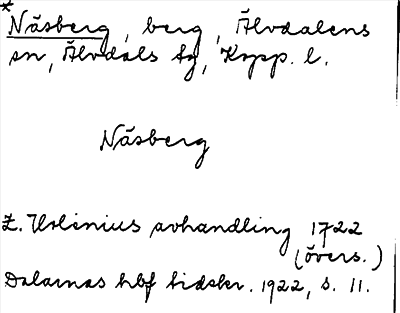 *Näsberg, berg, Älvdalens
sn, Älvdals tg, Kopp. l.
Näsberg
Z. Holenius avhandling 1722
(övers.)
Dalarnas hbf tidskr. 1922, s. 11.